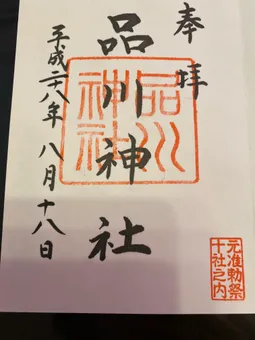 奉拝
品川神社
品川神社
平成二八年八月十八日
元准勅祭
十社之内